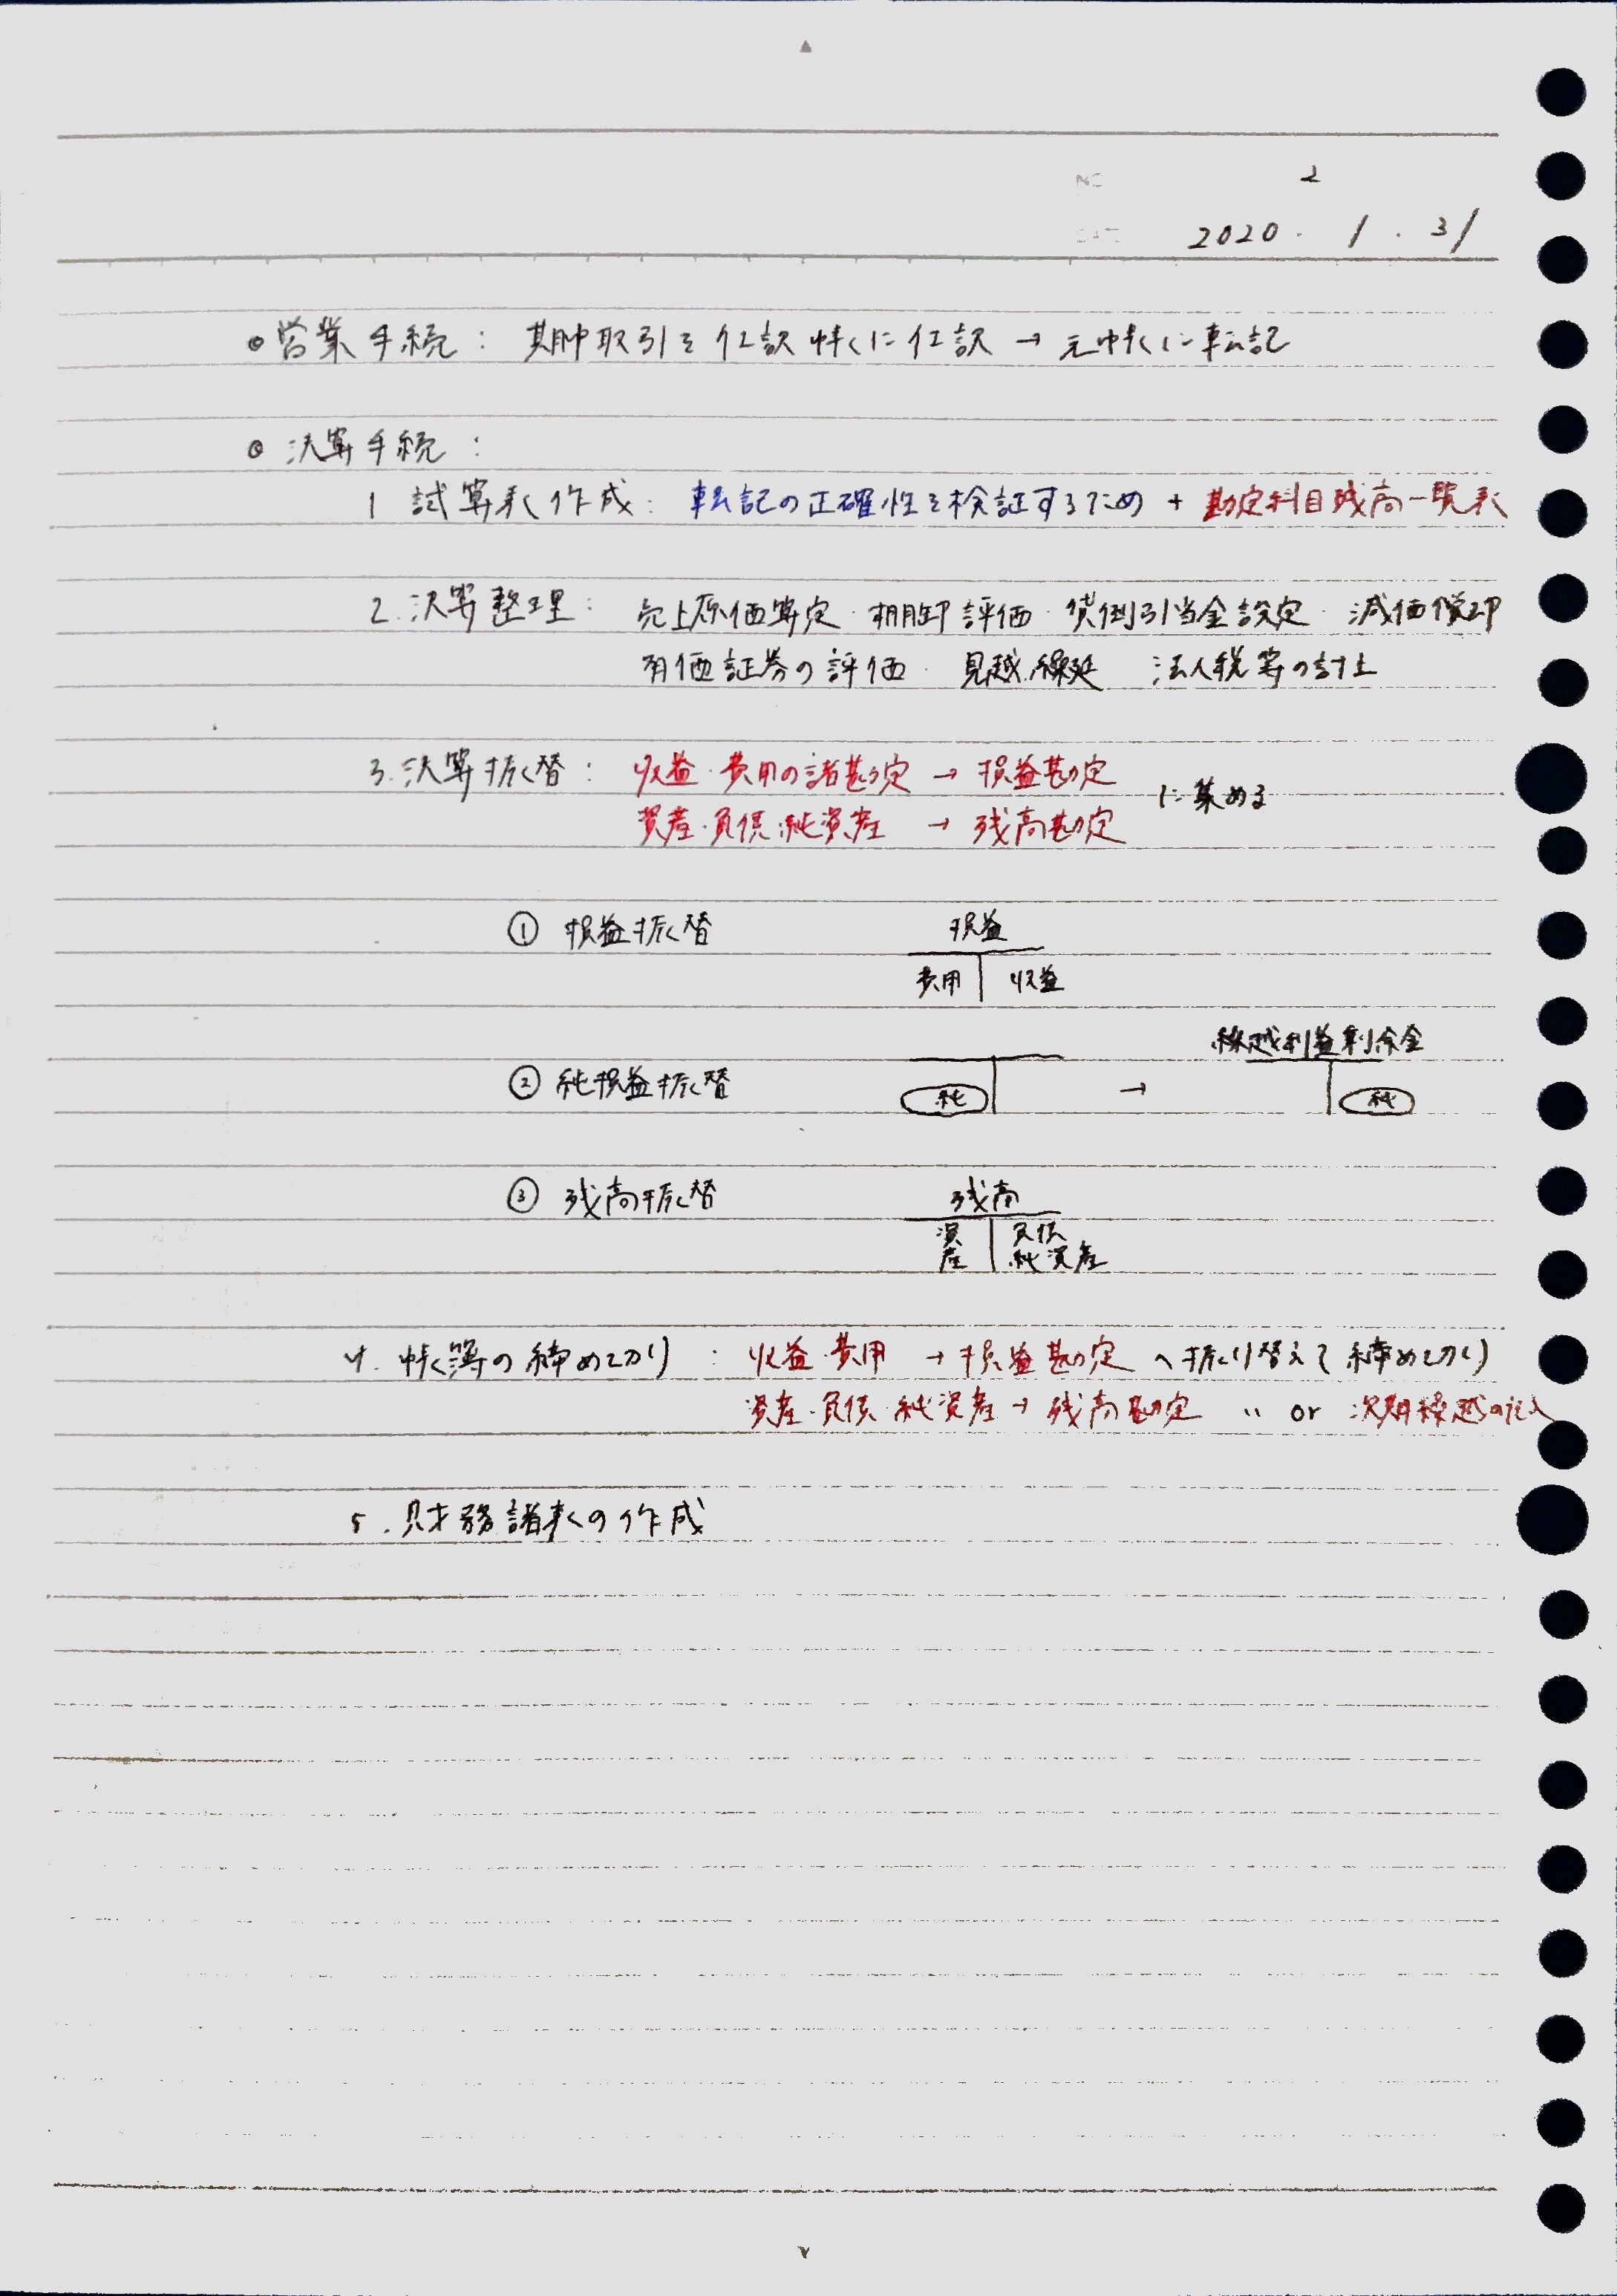 NO 2
DATE 2020 . 1 . 31
◎営業手続 : 期中取引を仕訳帳に仕訳 → 元帳に転記
◎ 決算手続 :
1 試算表作成 : 転記の正確性を検証するため + 勘定科目残高一覧表
2. 決算整理 : 売上原価算定 · 棚卸評価 · 貸倒引当金設定 · 減価償却
有価証券の評価 · 見越.繰延 法人税等の計上
3. 決算振替 : 収益 · 費用の諸勘定 → 損益勘定
に集める
資産 · 負債 · 純資産 → 残高勘定
① 損益振替 損益
費用 収益
繰越利益剰余金
② 純損益振替 純 → 純
③ 残高振替 残高
資産 負債
純資産
4. 帳簿の締め切り : 収益 · 費用 → 損益勘定 へ振り替えて締め切り
資産 · 負債 · 純資産 → 残高勘定 〃 or 次期繰越の記入
5. 財務諸表の作成